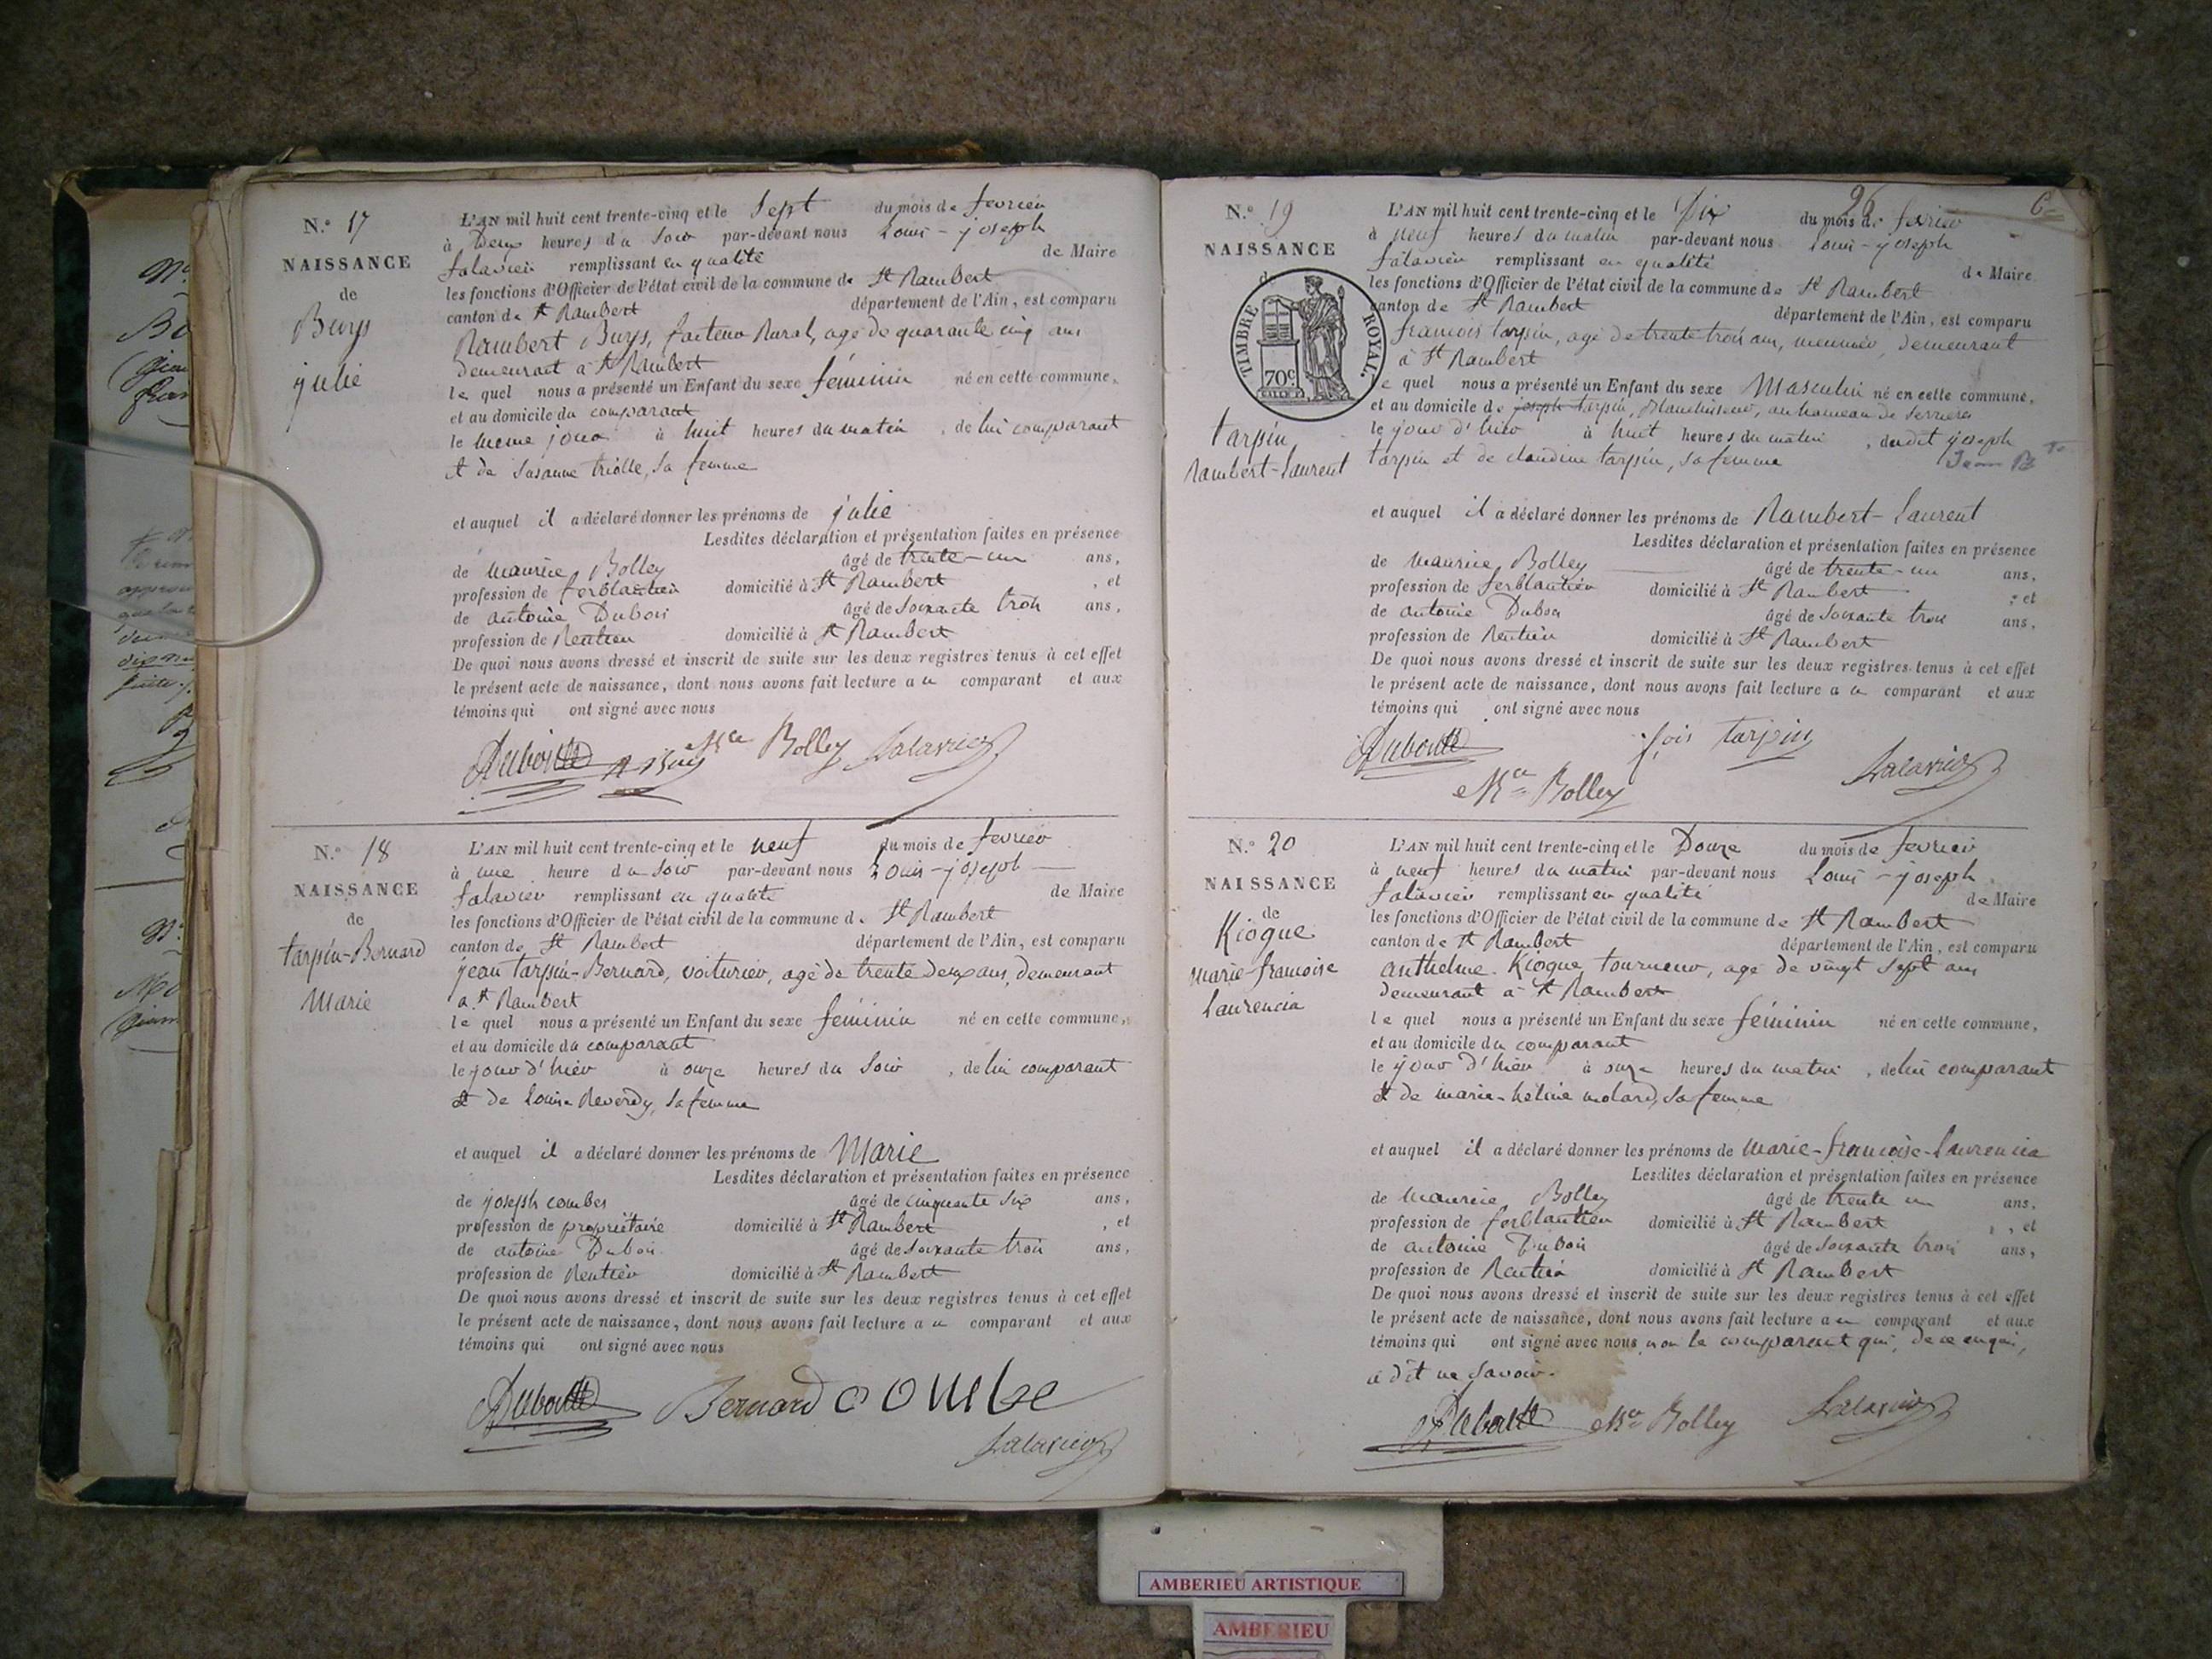 N.° 17
NAISSANCE
de
Buys
julie
L'AN mil huit cent trente-cinq et le Sept du mois de fevrier
à Deux heures du Soir par-devant nous Louis-joseph
Salavier remplissant en qualité de Maire
les fonctions d'Officier de l'état civil de la commune de St Rambert
canton de St Rambert département de l'Ain, est comparu
Rambert Buys, facteur Rural, agé de quarante cinq ans
demeurant à St Rambert
le quel nous a présenté un Enfant du sexe féminin né en cette commune,
et au domicile du comparant
le meme jour à huit heures du matin, de lui comparant
et de Susanne triolle, sa femme
et auquel il a déclaré donner les prénoms de julie
Lesdites déclaration et présentation faites en présence
de maurice Bolley âgé de trente-un ans,
profession de ferblantier domicilié à St Rambert, et
de antoine Dubois âgé de Soixante trois ans,
profession de Rentier domicilié à St Rambert
De quoi nous avons dressé et inscrit de suite sur les deux registres tenus à cet effet
le présent acte de naissance, dont nous avons fait lecture au comparant et aux
témoins qui ont signé avec nous
Mce Bolley Salavier
N.° 18
NAISSANCE
de
tarpin-Bernard
Marie
L'AN mil huit cent trente-cinq et le neuf du mois de fevrier
à une heure du Soir par-devant nous Louis-joseph
Salavier remplissant en qualité de Maire
les fonctions d'Officier de l'état civil de la commune de St Rambert
canton de St Rambert département de l'Ain, est comparu
jean tarpin-Bernard, voiturier, agé de trente deux ans, demeurant
a St Rambert
le quel nous a présenté un Enfant du sexe féminin né en cette commune,
et au domicile du comparant
le jour d'hier à onze heures du Soir, de lui comparant
et de Louise Reverdy, sa femme
et auquel il a déclaré donner les prénoms de Marie
Lesdites déclaration et présentation faites en présence
de joseph combes âgé de cinquante Six ans,
profession de propriétaire domicilié à St Rambert, et
de antoine Dubois âgé de Soixante trois ans,
profession de Rentier domicilié à St Rambert
De quoi nous avons dressé et inscrit de suite sur les deux registres tenus à cet effet
le présent acte de naissance, dont nous avons fait lecture au comparant et aux
témoins qui ont signé avec nous
Bernard combe
Salavier
96
N.° 19
NAISSANCE
de
TIMBRE ROYAL.
70c
tarpin
Rambert-Laurent
L'AN mil huit cent trente-cinq et le Dix du mois de fevrier
à neuf heures du matin par-devant nous Louis-joseph
Salavier remplissant en qualité de Maire
les fonctions d'Officier de l'état civil de la commune de St Rambert
canton de St Rambert département de l'Ain, est comparu
francois tarpin, agé de trente trois ans, meunier, demeurant
à St Rambert
le quel nous a présenté un Enfant du sexe Masculin né en cette commune,
et au domicile de joseph tarpin, Blanchisseur, au hameau de Serrieres
le jour d'hier à huit heures du matin, dudit joseph
tarpin et de claudine tarpin, sa femme
et auquel il a déclaré donner les prénoms de Rambert-Laurent
Lesdites déclaration et présentation faites en présence
de maurice Bolley âgé de trente-un ans,
profession de ferblantier domicilié à St Rambert ; et
de antoine Dubois âgé de Soixante trois ans,
profession de Rentier domicilié à St Rambert
De quoi nous avons dressé et inscrit de suite sur les deux registres tenus à cet effet
le présent acte de naissance, dont nous avons fait lecture au comparant et aux
témoins qui ont signé avec nous
fois tarpin
Mce Bolley Salavier
N.° 20
NAISSANCE
de
Kiogue
marie-francoise
laurencia
L'AN mil huit cent trente-cinq et le Douze du mois de fevrier
à neuf heures du matin par-devant nous Louis-joseph
Salavier remplissant en qualité de Maire
les fonctions d'Officier de l'état civil de la commune de St Rambert
canton de St Rambert département de l'Ain, est comparu
anthelme Kiogue, tourneur, agé de vingt Sept ans
demeurant à St Rambert
le quel nous a présenté un Enfant du sexe féminin né en cette commune,
et au domicile du comparant
le jour d'hier à onze heures du matin, de lui comparant
et de marie-heline molard, sa femme
et auquel il a déclaré donner les prénoms de marie-francoise-laurencia
Lesdites déclaration et présentation faites en présence
de maurice Bolley âgé de trente un ans,
profession de ferblantier domicilié à St Rambert, et
de antoine Dubois âgé de Soixante trois ans,
profession de Rentier domicilié à St Rambert
De quoi nous avons dressé et inscrit de suite sur les deux registres tenus à cet effet
le présent acte de naissance, dont nous avons fait lecture au comparant et aux
témoins qui ont signé avec nous non le comparant qui, de ce enquis,
a dit ne Savoir.
Mce Bolley Salavier
AMBERIEU ARTISTIQUE
AMBERIEU